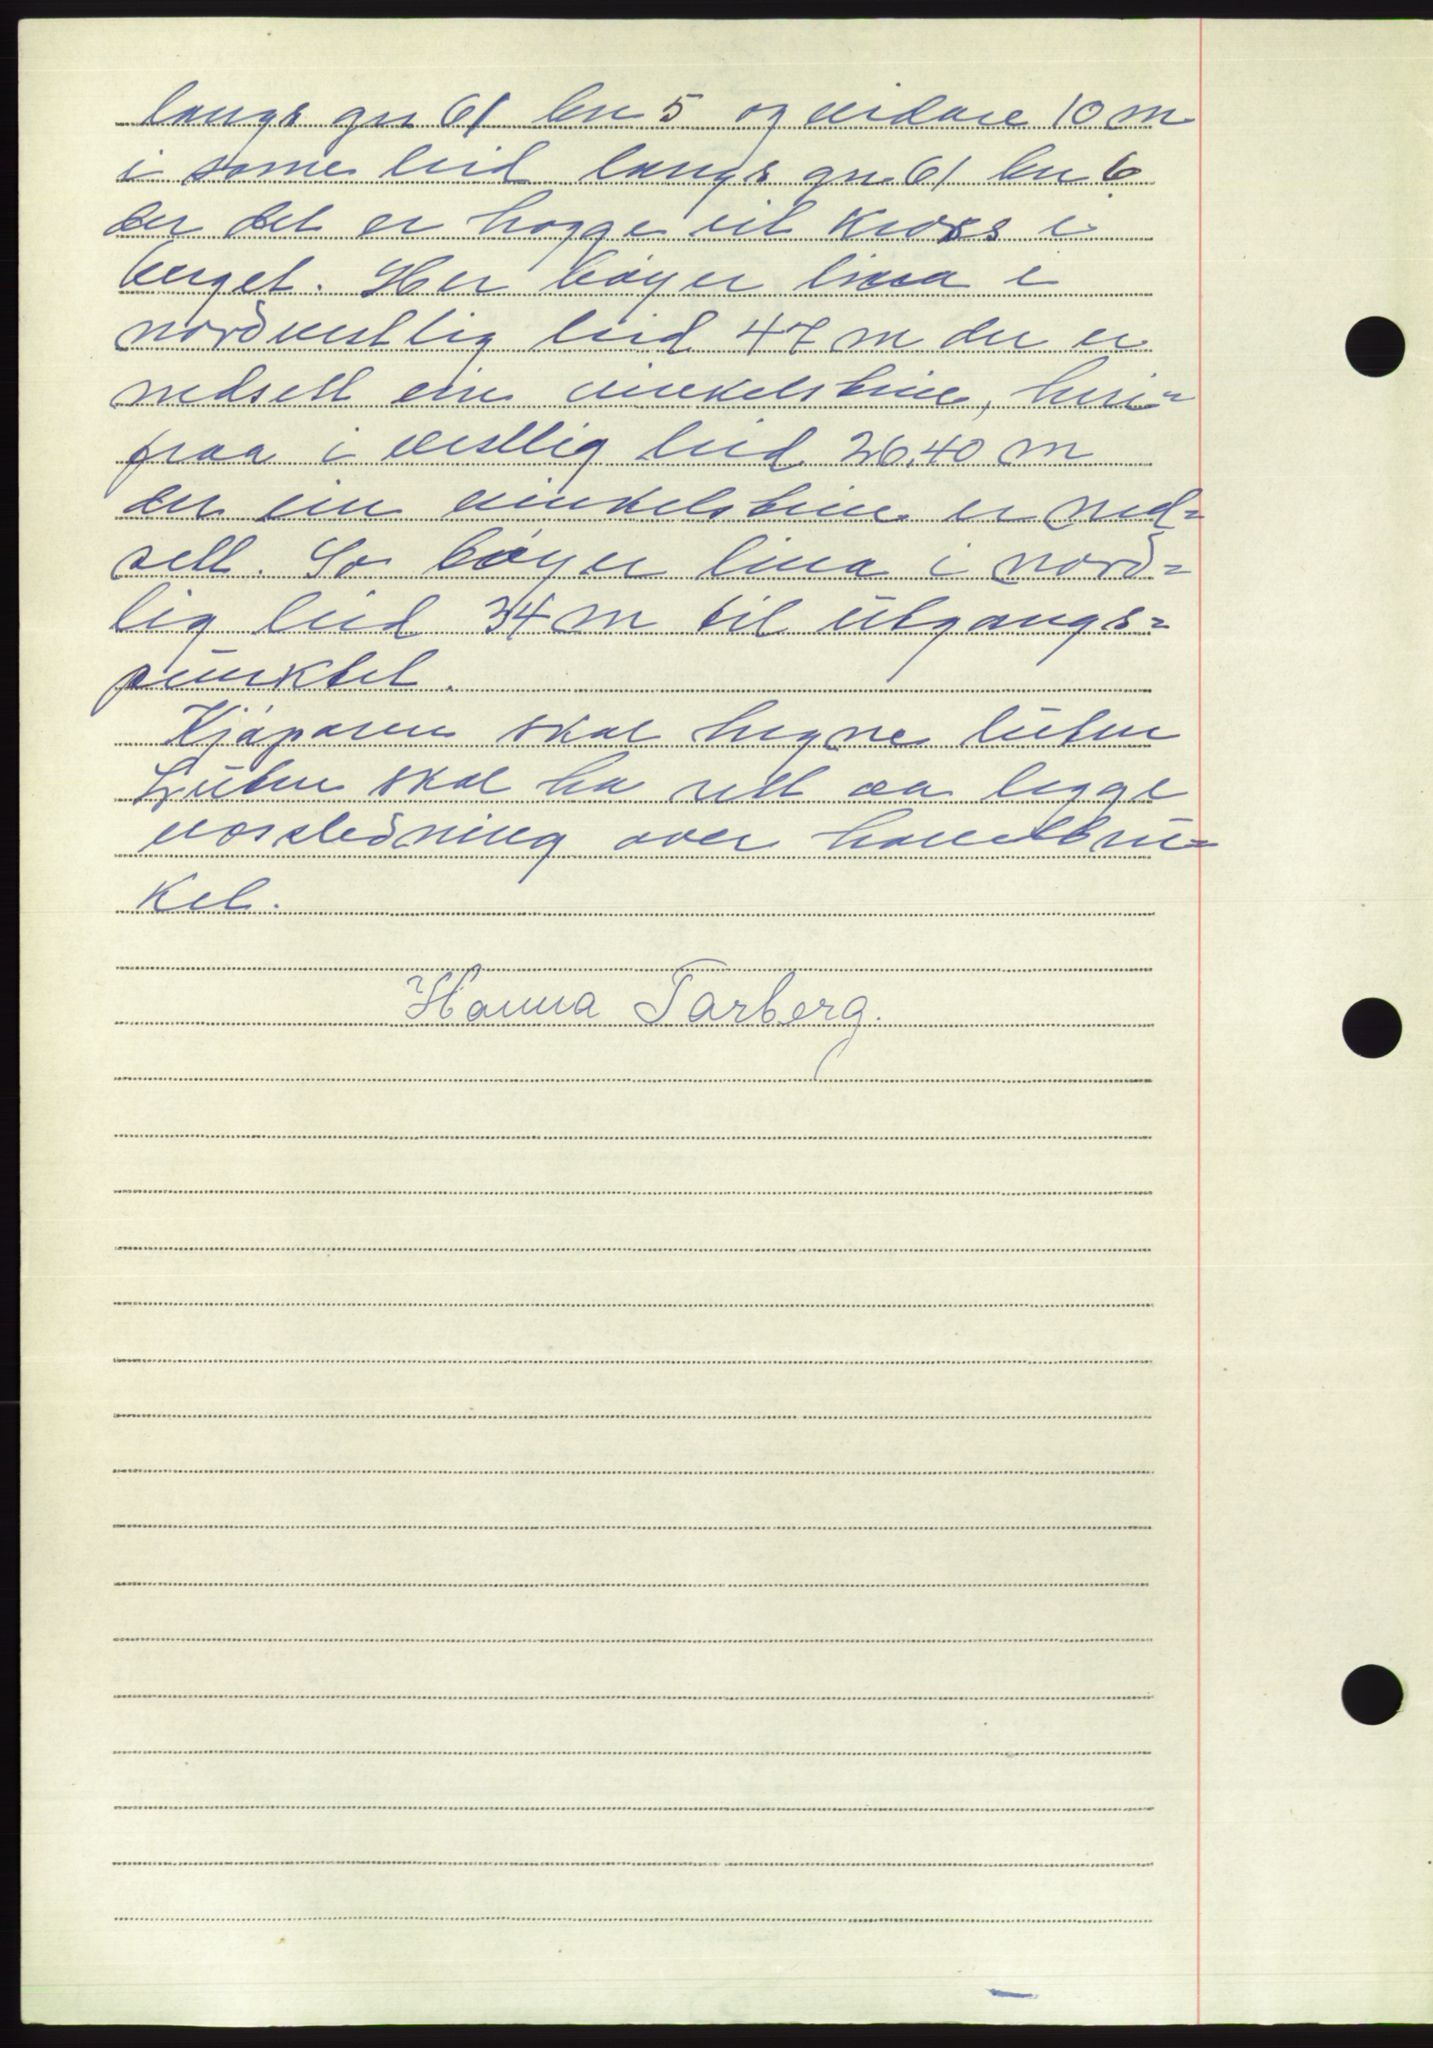 langs gnr 61 bnr 5 og vidare 10 m
i same leid langs gnr 61 bnr 6
der det er hogge eit kross i
berget. Her bøyer lina i
nordvestlig leid 47 m der er
nedsett ein vinkelstein, heri-
fraa i vestlig leid 26,40 m
der ein vinkelstein er ned=
sett. So bøyer lina i nord=
lig leid 34 m til utgangs=
punktet.
Kjøparen skal hegne luten
Luten skal ha rett aa legge
vassledning over hovudbru=
ket.
Hanna Tarberg.